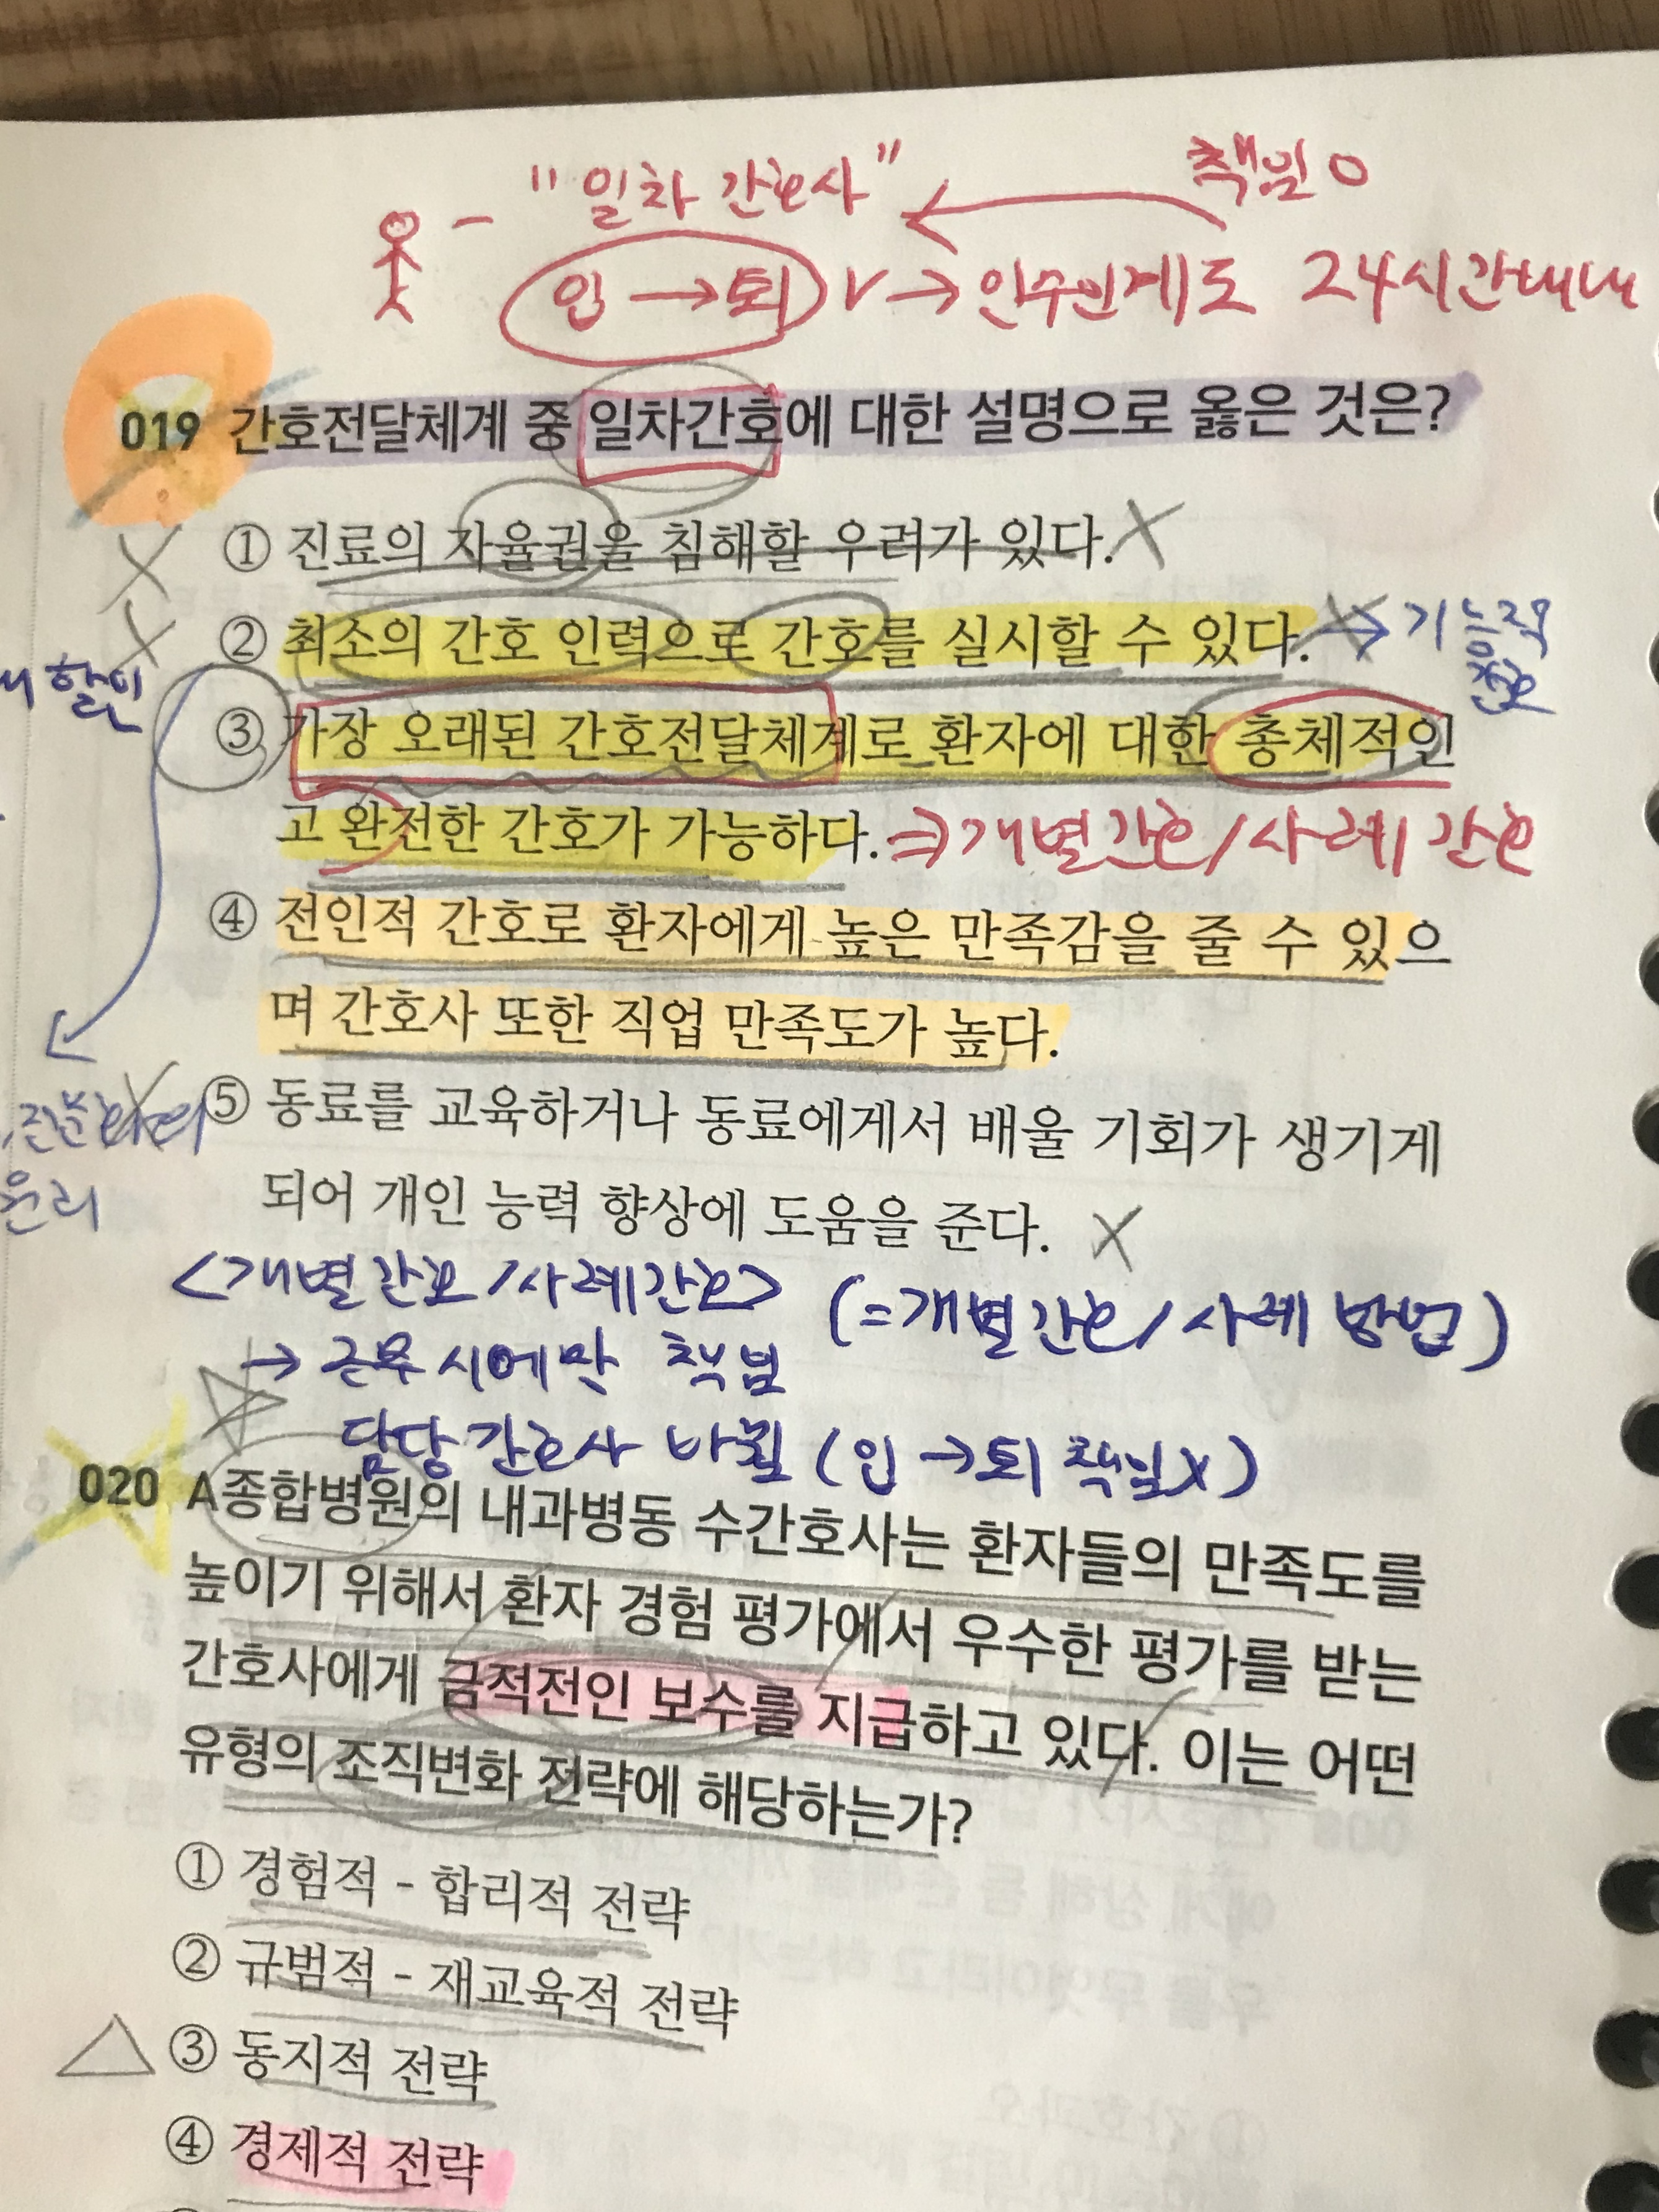 "일차 간호사" 책임 O
입 → 퇴 → 인수인계도 24시간내내
019 간호전달체계 중 일차간호에 대한 설명으로 옳은 것은?
① 진료의 자율권을 침해할 우려가 있다.
② 최소의 간호 인력으로 간호를 실시할 수 있다. → 기능적
간호
할인
③ 가장 오래된 간호전달체계로 환자에 대한 총체적인
고 완전한 간호가 가능하다. ⇒ 개별간호/사례 간호
④ 전인적 간호로 환자에게 높은 만족감을 줄 수 있으
며 간호사 또한 직업 만족도가 높다.
⑤ 동료를 교육하거나 동료에게서 배울 기회가 생기게
되어 개인 능력 향상에 도움을 준다.
원리
<개별간호/사례간호> (=개별간호/사례 방법)
→ 근무 시에만 책임
담당 간호사 바뀜 (입 → 퇴 책임X)
020 A종합병원의 내과병동 수간호사는 환자들의 만족도를
높이기 위해서 환자 경험 평가에서 우수한 평가를 받는
간호사에게 금적전인 보수를 지급하고 있다. 이는 어떤
유형의 조직변화 전략에 해당하는가?
① 경험적 - 합리적 전략
② 규범적 - 재교육적 전략
③ 동지적 전략
④ 경제적 전략